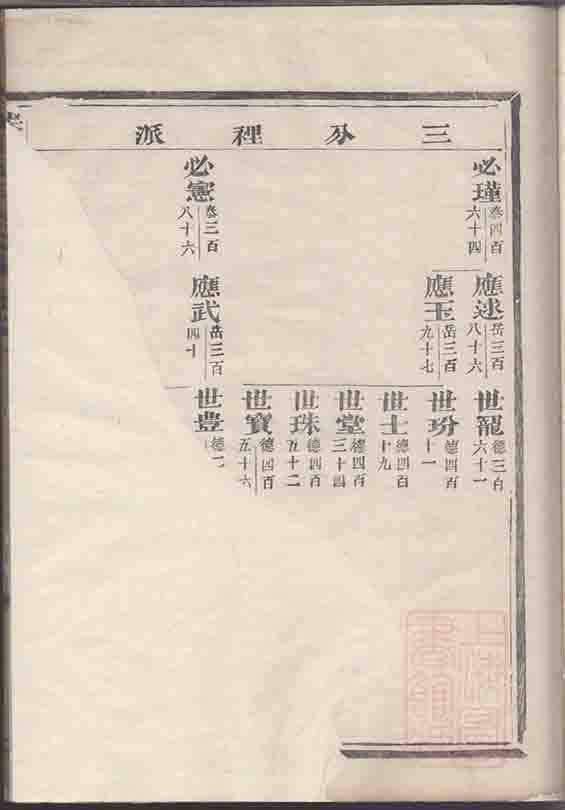 三分裡派
必瑾
泰四百
六十四
必憲
泰三百
八十六
應逑
岳三百
八十六
應玉
岳三百
九十七
應武
岳三百
四十
世龍
德三百
六十一
世玢
德四百
十一
世士
德四百
十九
世堂
德四百
三十四
世珠
德四百
五十二
世寶
德四百
五十六
世豊
德
上海圖
書館藏